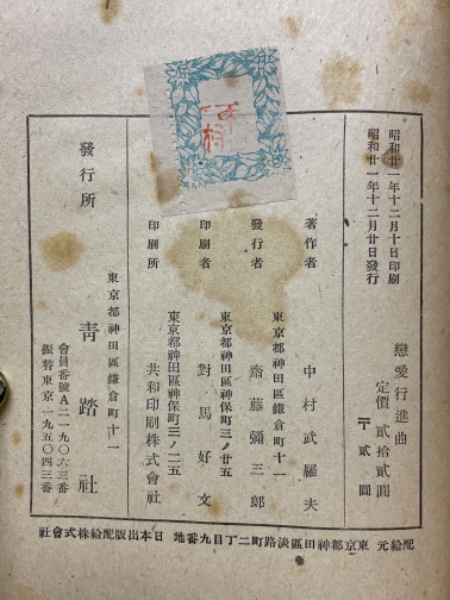 昭和廿一年十二月十日印刷
昭和廿一年十二月廿日發行
戀愛行進曲
定價 貳拾貳圓
〒 貳圓
著作者 中村武羅夫
東京都神田區鎌倉町十一
發行者 齋藤彌三郎
東京都神田區神保町三ノ廿五
印刷者 對馬好文
東京都神田區神保町三ノ二五
印刷所 共和印刷株式會社
東京都神田區鎌倉町十一
發行所 青踏社
會員番號A二一九〇六三番
振替東京一九五〇四三番
配給元 東京都神田區淡路町二丁目九番地 日本出版配給株式會社